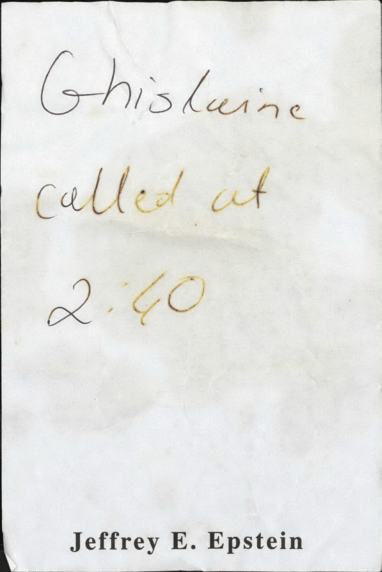 Ghislaine
called at
2:40
Jeffrey E. Epstein